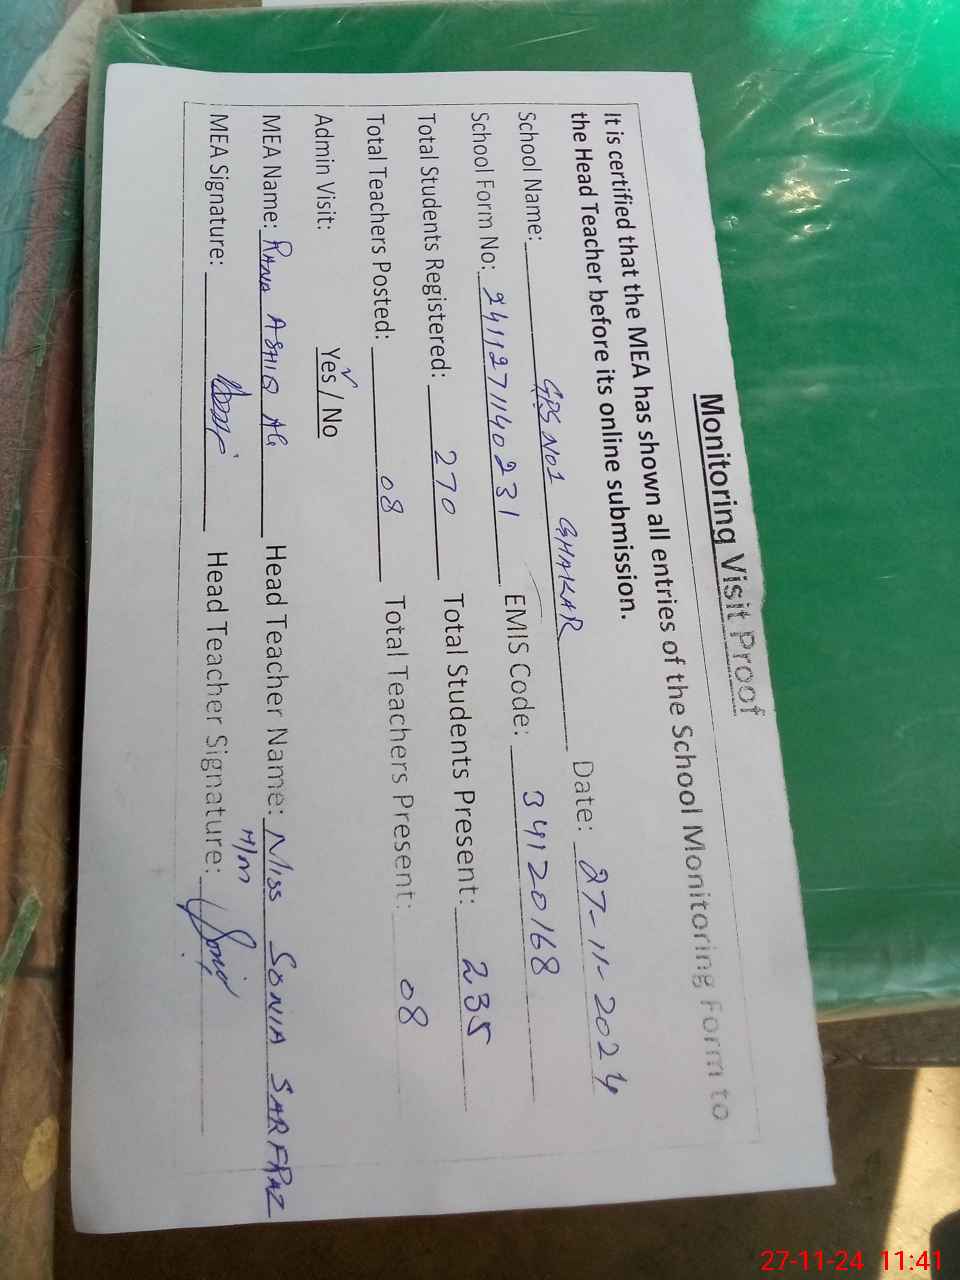 Monitoring Visit Proof
It is certified that the MEA has shown all entries of the School Monitoring Form to
the Head Teacher before its online submission.
School Name: GPS No1 GHAKAR Date: 27-11-2024
School Form No: 2411271140231 EMIS Code: 34120168
Total Students Registered: 270 Total Students Present: 235
Total Teachers Posted: 08 Total Teachers Present: 08
Admin Visit: Yes / No
MEA Name: RANA ASHIQ Ali Head Teacher Name: Miss SONIA SARFRAZ
H/m
MEA Signature: Head Teacher Signature:
27-11-24 11:41